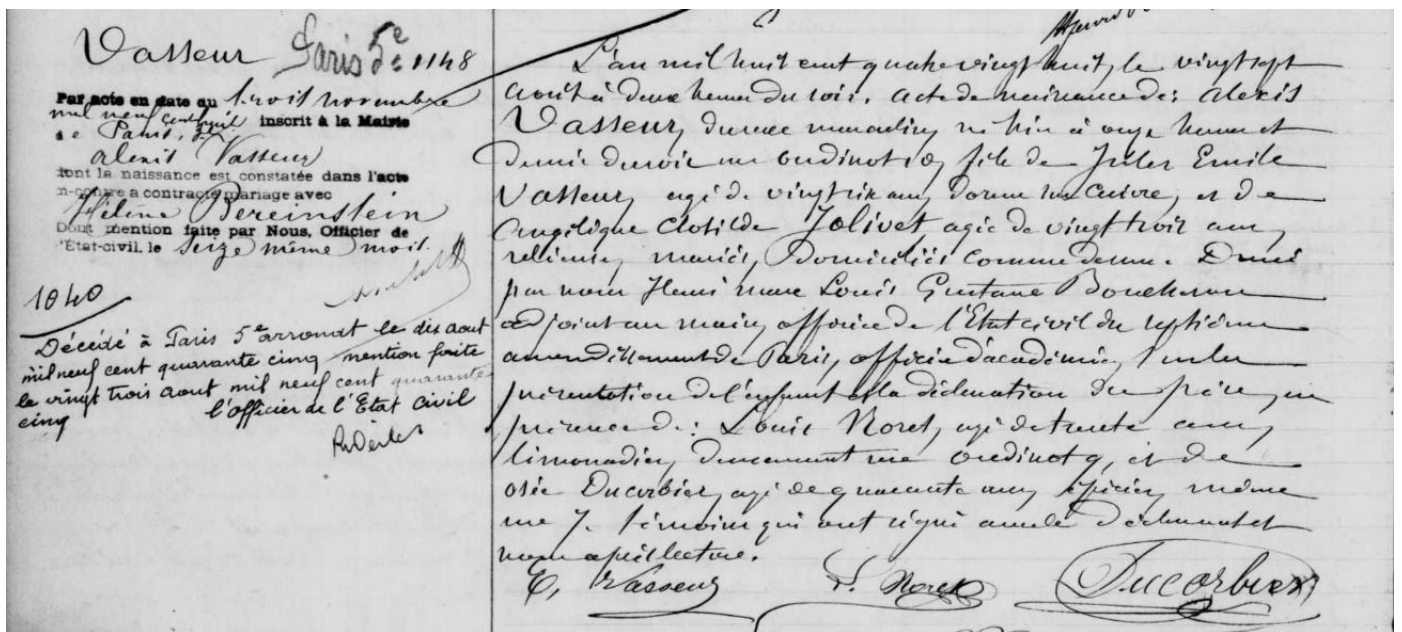 Vasseur
Paris 5e 1148
Par acte en date du trois novembre
mil neuf cent inscrit à la Mairie
de Paris,
Alexis Vasseur
dont la naissance est constatée dans l'acte
ci-contre a contracté mariage avec
Hélène Bereinstein
Dont mention faite par Nous, Officier de
l'État-civil, le seize même mois.
1040
Décédé à Paris 5e arrondt le dix aout
mil neuf cent quarante cinq mention faite
le vingt trois aout mil neuf cent quarante
cinq
l'officier de l'Etat Civil
L'an mil huit cent quatre vingt huit, le vingt sept
août à deux heures du soir. acte de naissance de: Alexis
Vasseur, du sexe masculin, né hier à onze heures et
demie du soir rue oudinot fils de Jules Emile
Vasseur, agé de vingt six ans, doreur sur cuivre, et de
Angélique Clotilde Jolivet agée de vingt trois ans,
relieuse, mariés, Domiciliés comme dessus. Dressé
par nous Henri Louis Gustave
adjoint au maire, officier de l'Etat civil du septième
arrondissement de Paris, officier d'académie, sur la
présentation de l'enfant et la déclaration du père, en
présence de: Louis Noret, agé de trente ans,
limonadier, demeurant rue oudinot 9, et de
osée Ducorbier, agé de quarante ans, épicier, même
rue 7. témoins qui ont signé avec le déclarant et
nous après lecture.
E. Vasseur
L. Noret
Ducorbier